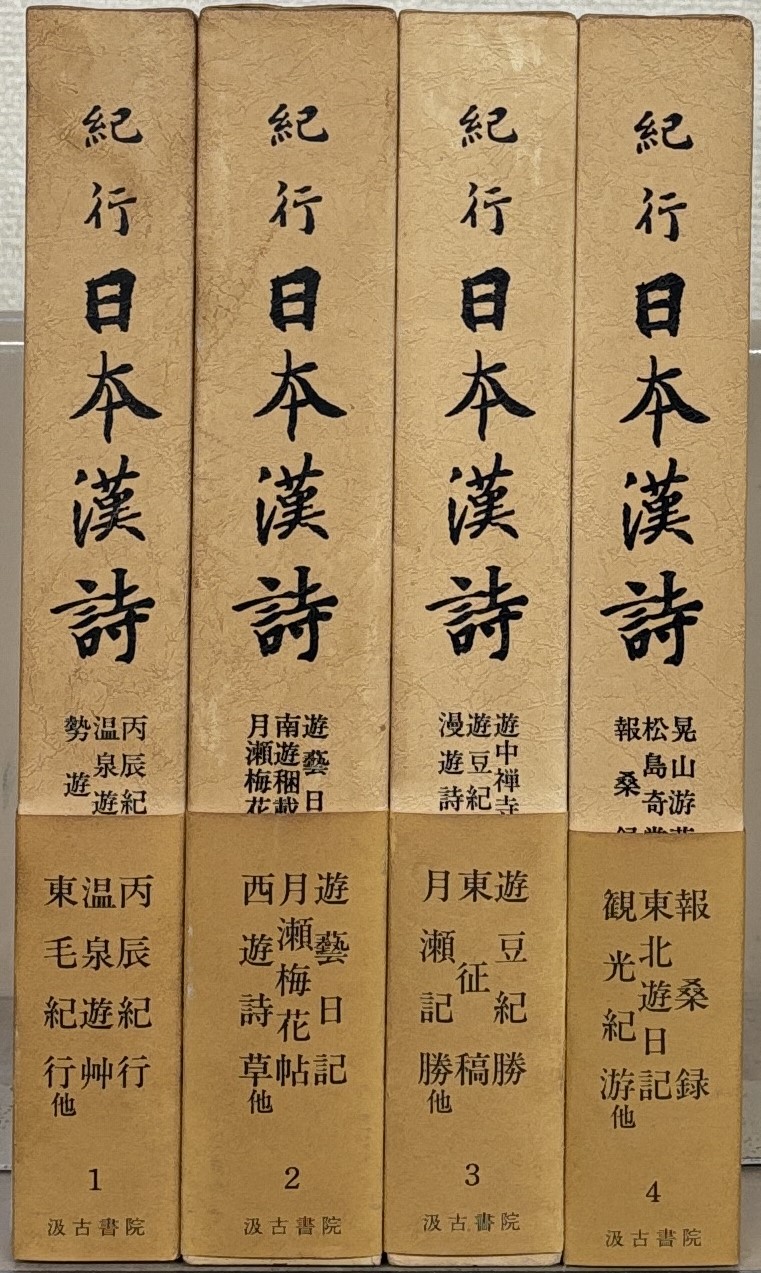 紀行日本漢詩
丙辰紀
温泉遊
勢遊
丙辰紀行
温泉遊艸
東毛紀行他
1
汲古書院
紀行日本漢詩
遊藝日
南遊稇載
月瀬梅花
遊藝日記
月瀬梅花帖
西遊詩草他
2
汲古書院
紀行日本漢詩
遊中禅寺
遊豆紀
漫遊詩
遊豆紀勝
東征稿
月瀬記勝他
3
汲古書院
紀行日本漢詩
晃山游
松島奇
報桑
報桑録
東北遊日記
観光紀游他
4
汲古書院